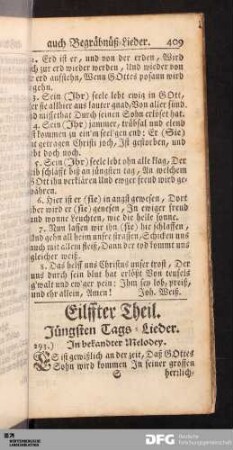 auch Begräbnüß-Lieder. 409
2. Erd ist er, und von der erden, Wird
auch zur erd wieder werden, Und wieder von
der erd aufstehn, Wenn GOttes posaun wird
angehn.
3. Sein (Ihr) seele lebt ewig in GOtt,
Der sie allhier aus lauter gnad, Von aller sünd
und missethat Durch seinen Sohn erlöset hat.
4. Sein (Ihr) jammer, trübsal und elend
Ist kommen zu ein'm seel'gen end: Er (Sie)
hat getragen Christi joch, Ist gestorben, und
lebt doch noch.
5. Sein (Ihr) seele lebt ohn alle klag, Der
leib schläfft biß an jüngsten tag, An welchem
GOtt ihn verklären Und ewger freud wird gewähren.
6. Hier ist er (sie) in angst gewesen, Dort
aber wird er (sie) genesen, In ewiger freud
und wonne Leuchten, wie die helle sonne.
7. Nun lassen wir ihn (sie) hie schlaffen,
Und gehn all heim unsre strassen, Schicken uns
auch mit allem fleiß, Dann der tod kommt uns
gleicher weiß.
8. Das helff uns Christus unser trost, Der
uns durch sein blut hat erlößt Von teufels
g'walt und ew'ger pein: Ihm sey lob, preiß,
und ehr allein, Amen! Joh. Weiß.
Eilffter Theil.
Jüngsten Tags-Lieder.
293.) In bekandter Melodey.
ES ist gewißlich an der zeit, Daß GOttes
Sohn wird kommen In seiner grossen
S herrlich-
SLUB
DFG Deutsche
Forschungsgemeinschaft